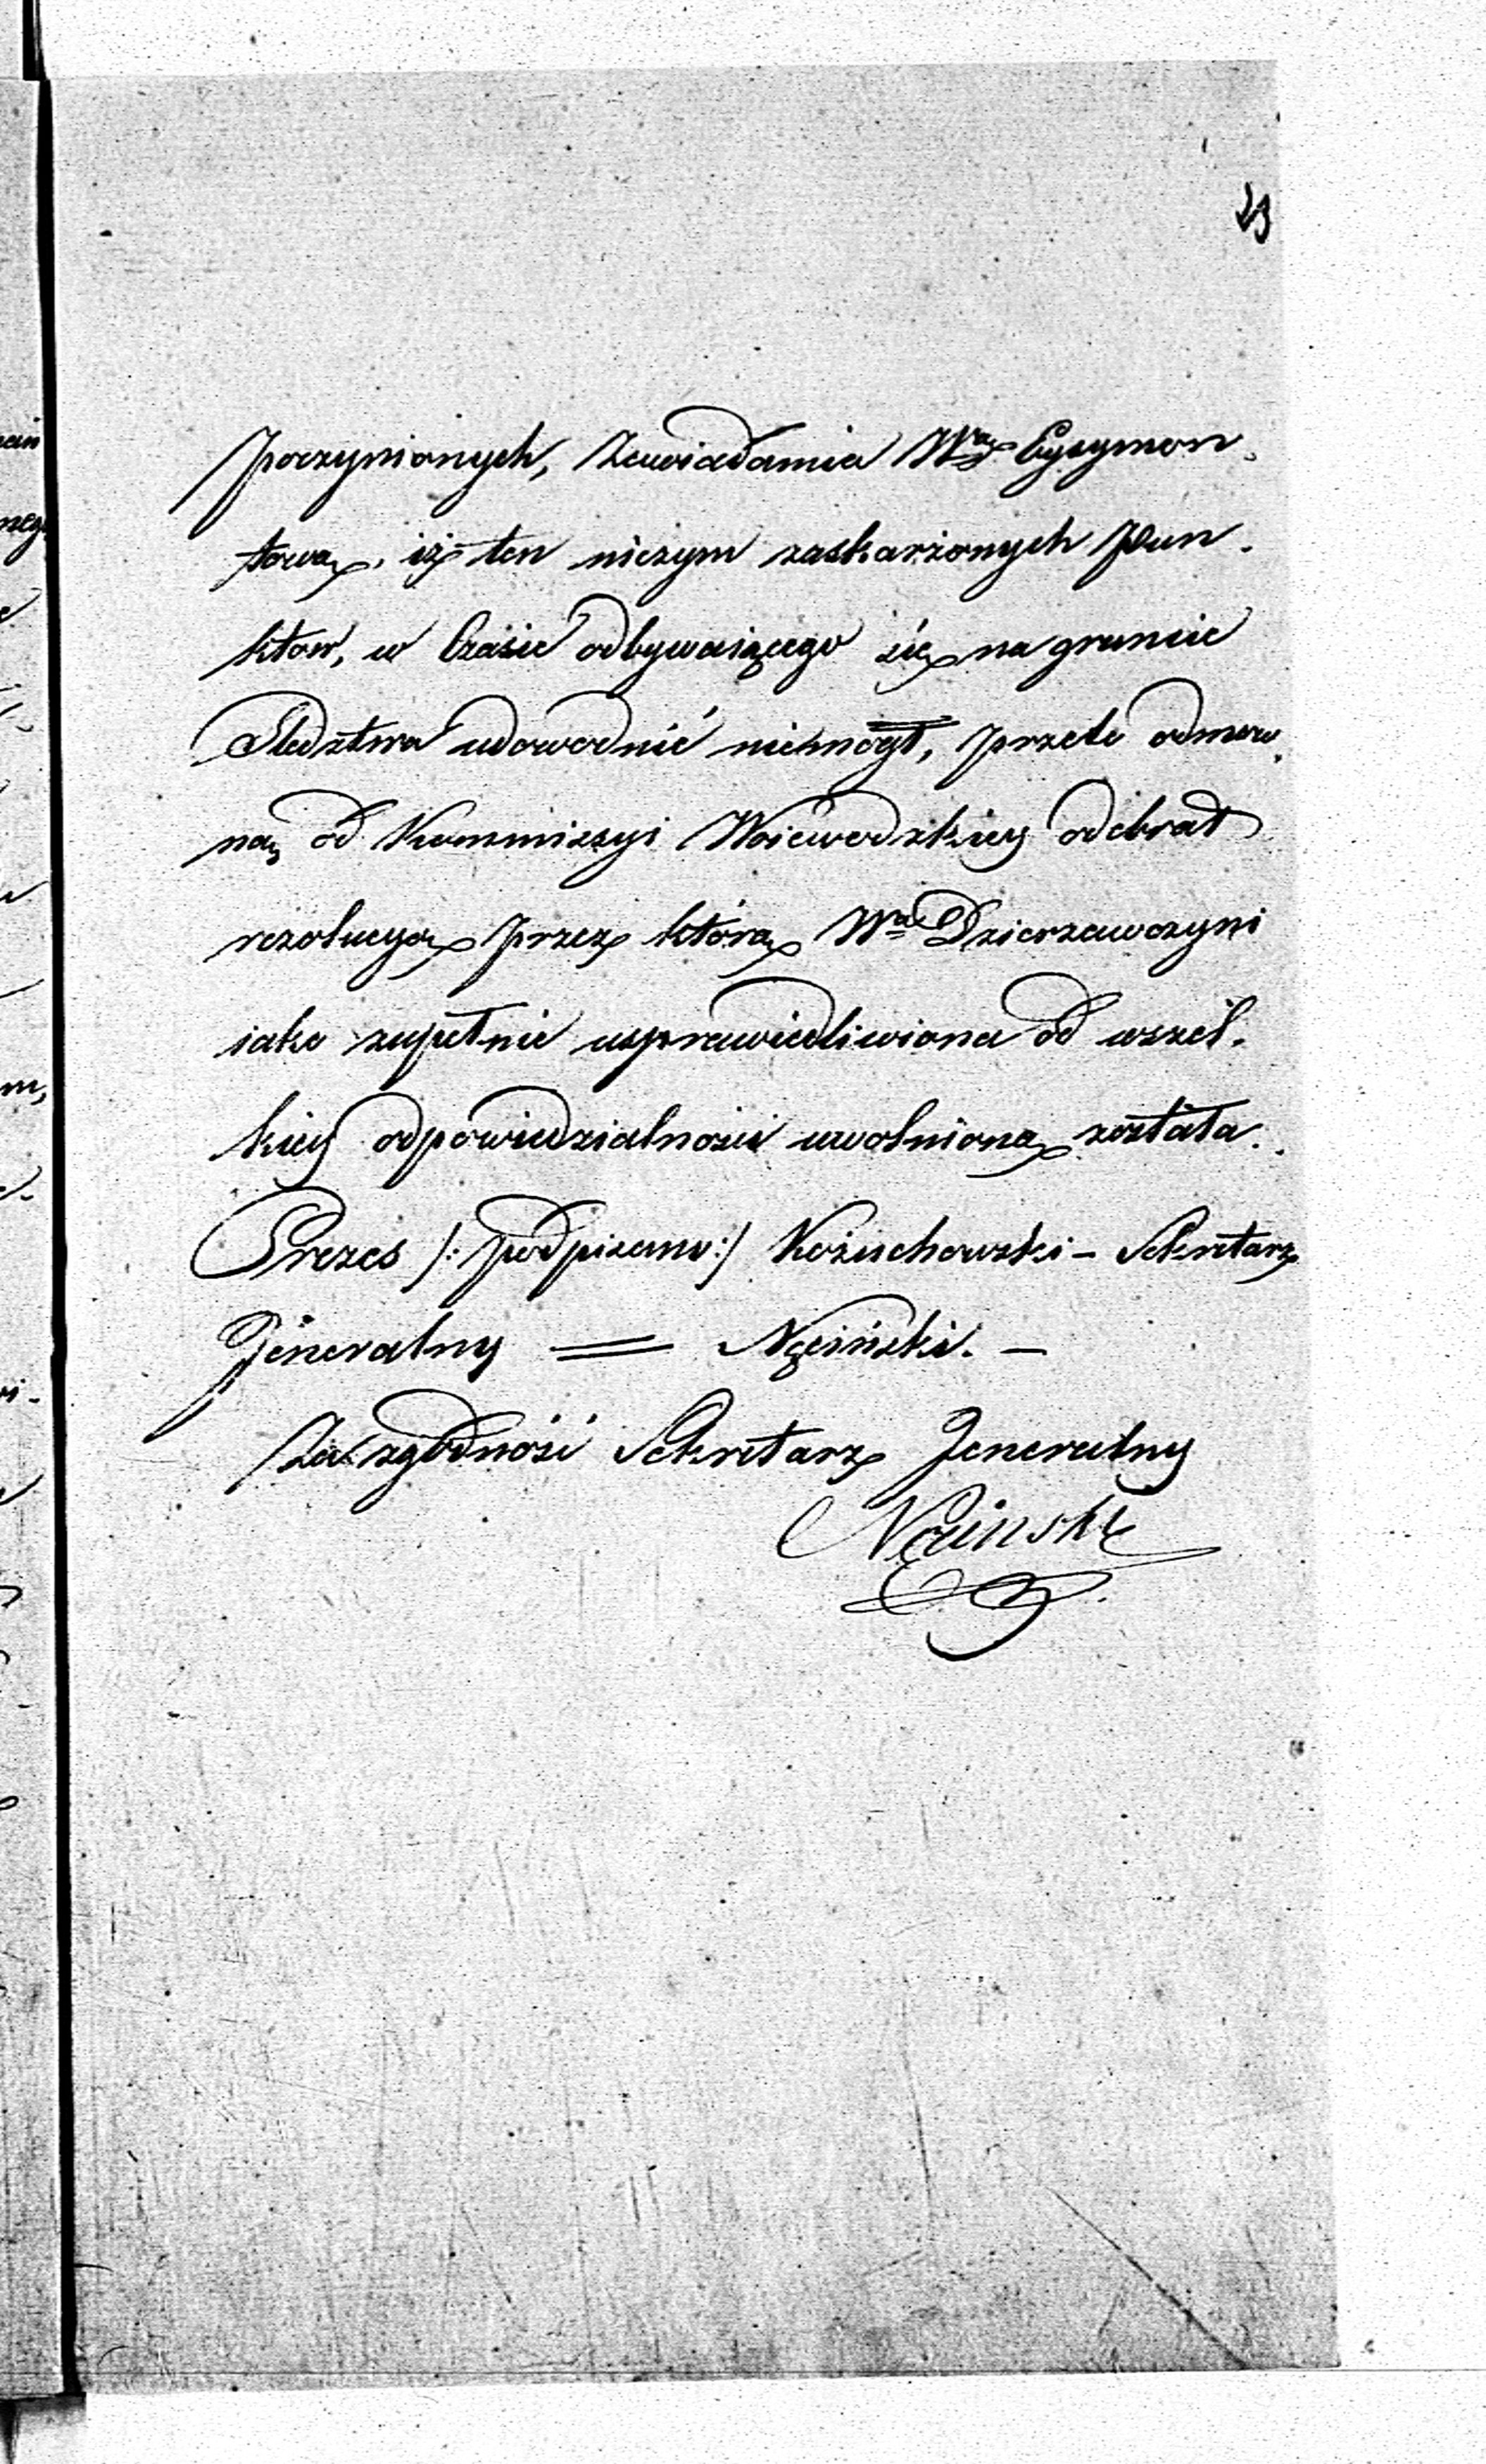 23
poczynionych, Zawiadamia Wą Eysymon-
tową, iż ten niczym zaskarżonych Pun-
ktow, w Czasie odbywaiącego się na gruncie
Sledztwa udowodnić niemógł, przeto odmow-
ną od Kommissyi Woiewodzkiey odebrał
rezolucyą przez którą Wa Dzierzawczyni
iako zupełnie usprawiedliwiona od wszel-
kiey odpowiedzialności uwolnioną została.
Prezes /: podpisano :/ Kożuchowski - Sekretarz
Jeneralny = Nęciński. —
Za zgodność Sekretarz Jeneralny
Nęcinski